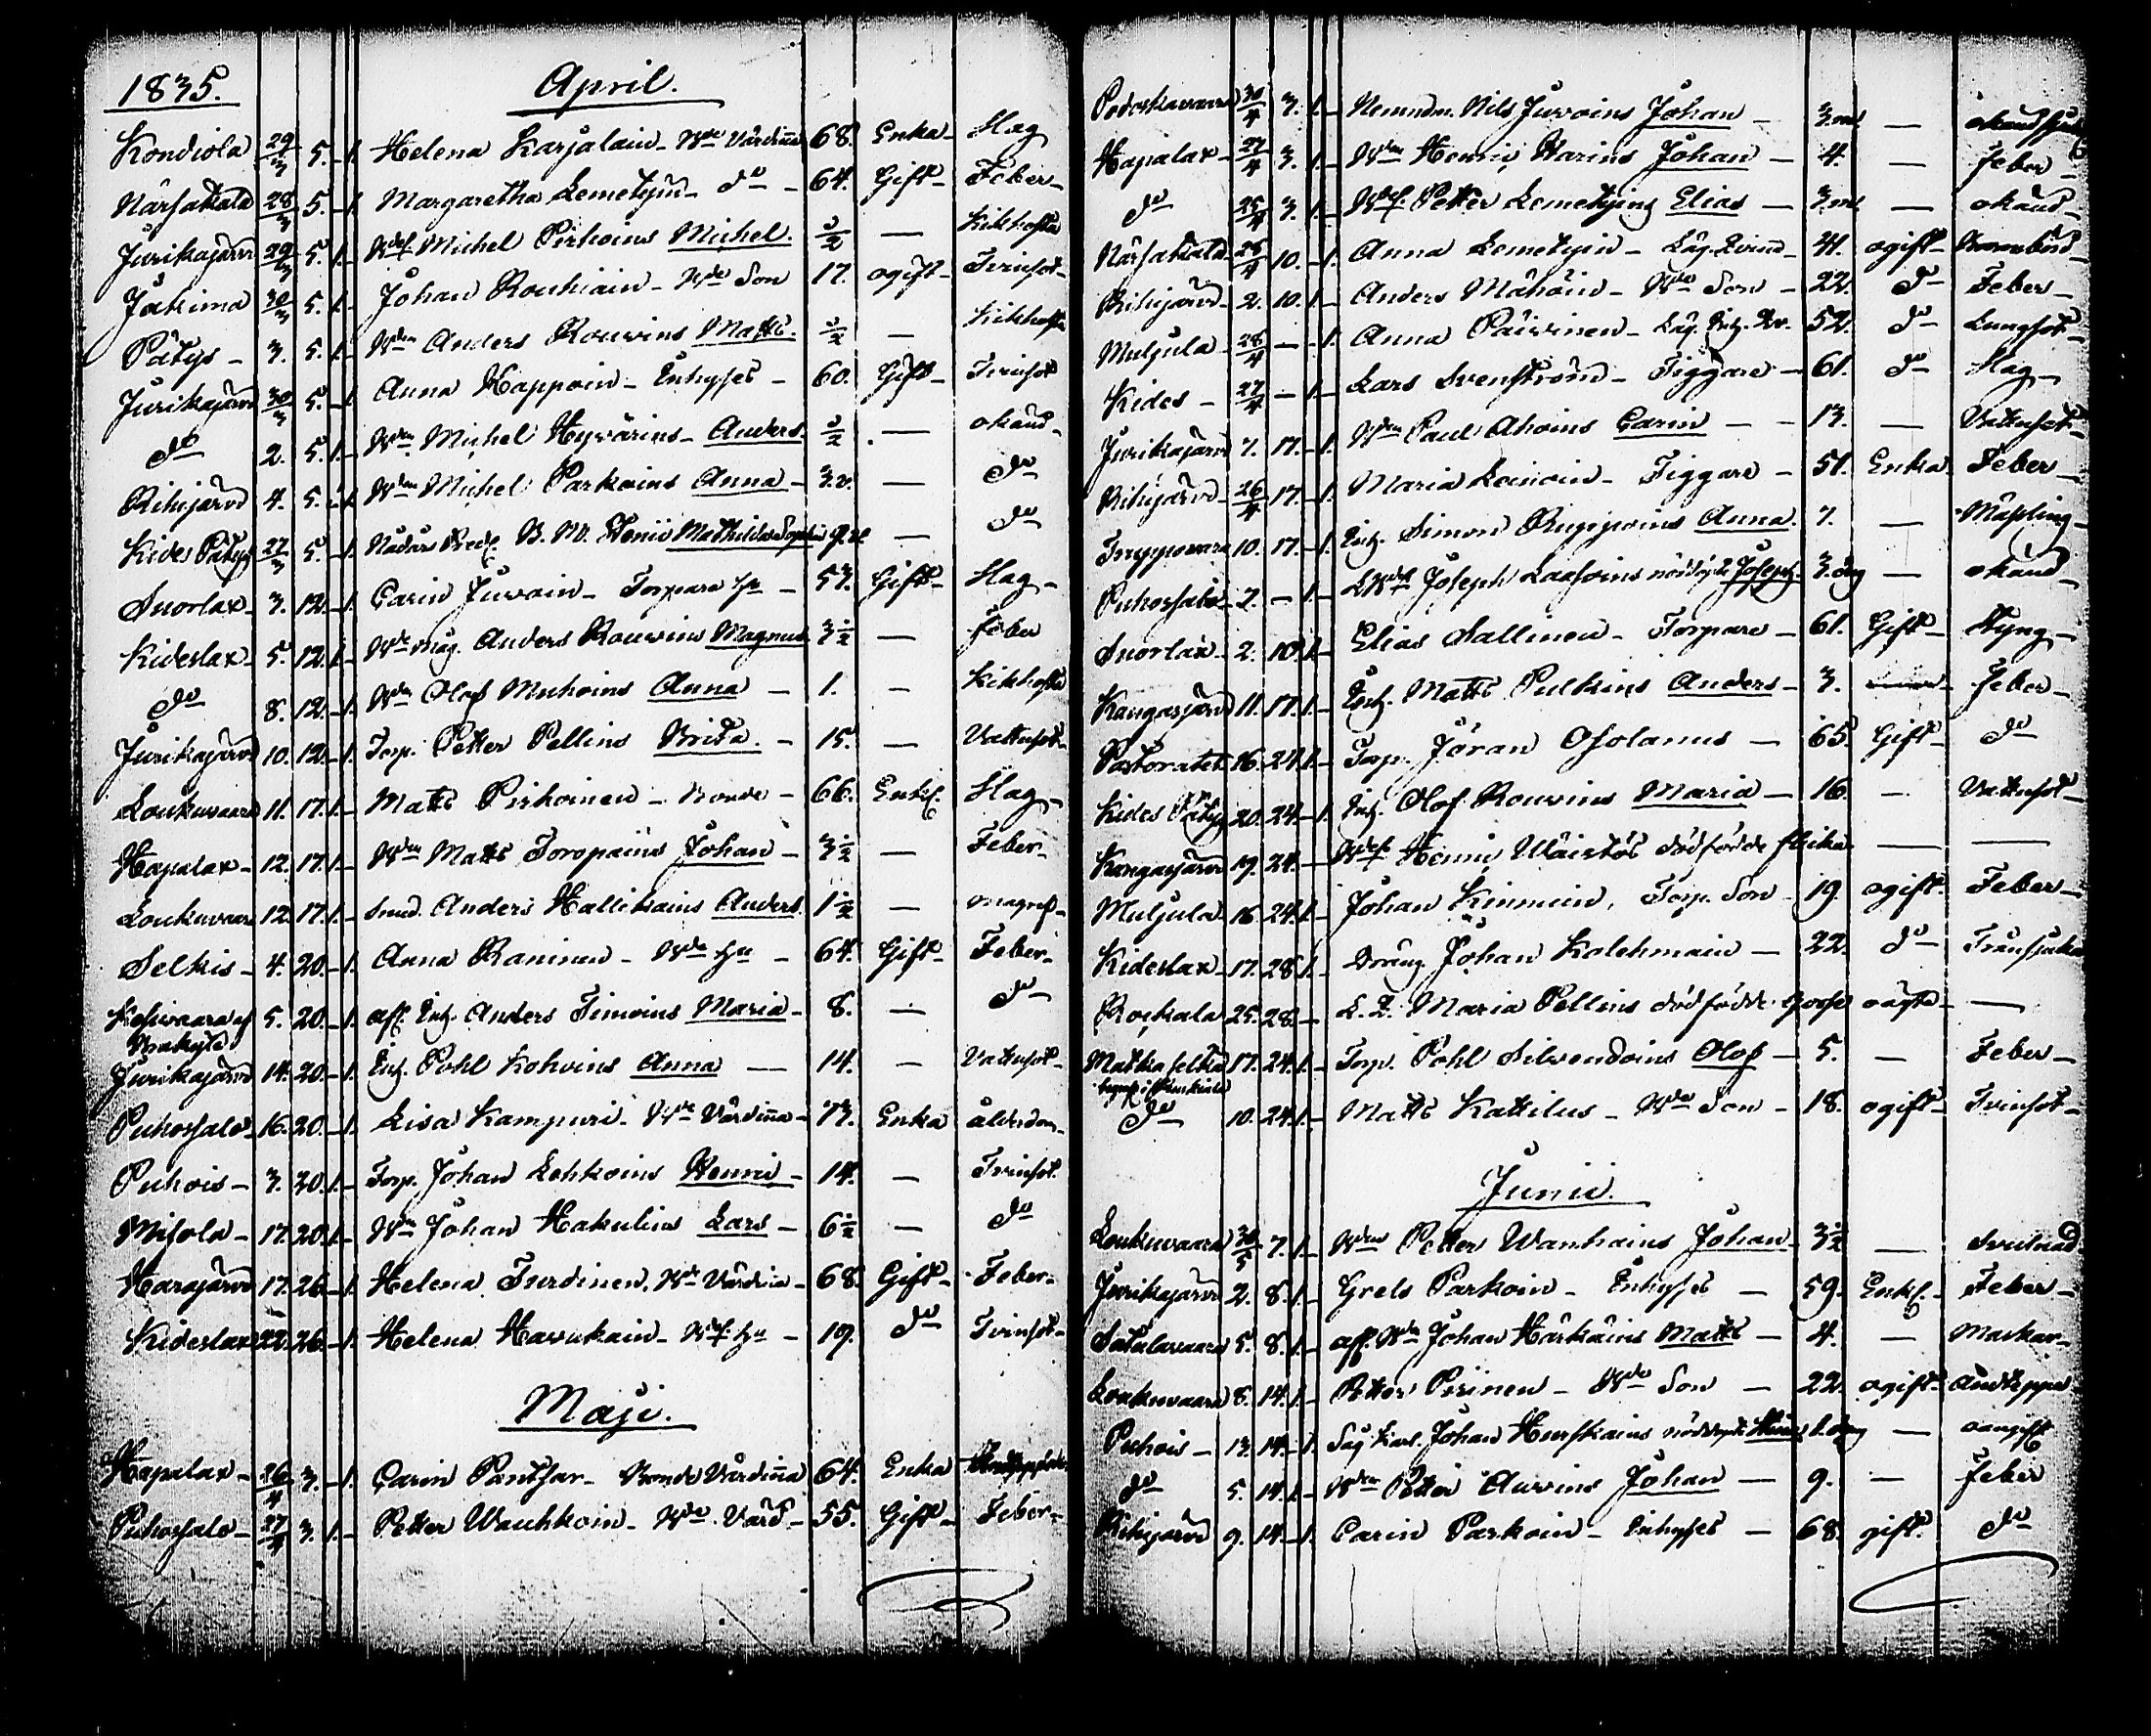 1835. April.
Kondiola 29/3 5. - 1. Helena Karjalain - Wde Värdinna 68. Enka - Slag
Närsakkala 28/3 5. - 1. Margaretha Lemetyin - do - 64. Gift - Feber -
Jurikajärvi 29/3 5. 1. - Michel Pirhoins Michel. 1/2 — Kikhosta
Jakima 30/3 5. 1. - Johan Rouhiain - Wde Son 17. ogift - Tvinsot -
Pätys - 3. 5. 1. - Wden Anders Rouvins Matts. 1/2 — Kikhosta
Jurikajärvi 30/3 5. - 1. Anna Happoin - Enhyses - 60. Gift - Tvinsot
do 2. 5. 1. - Wden Michel Hyvärins - Anders. 1/2 — okänd -
Rihijärvi 4. 5. - 1. Wden Michel Parkoins Anna - 3. v. — do
Kides Pätys 27/3 5. - 1. Nådårs Pred. B. W. Mathilda Sophia — do
Snorlax - 3. 12. - 1. Carin Juvain - Torpare hu - 57. Gift - Slag -
Kideslax - 5. 12. 1. - Wde måg. Anders Rouvins Magnus 3 1/2 — feber
do 8. 12. - 1. Wden Olof Muhoins Anna - 1. - Kikhosta
Jurikajärvi 10. 12. - 1. Torp. Petter Pellins Brita. - 15. — Vattusot -
Loukuvaara 11. 17. 1. - Matts Pirhoinen - Bonde - 66. Enkl. Slag -
Hapalax - 12. 17. 1. - Wden Matts Toropains Johan - 3 1/2 — Feber -
Loukuvaara 12. 17. 1. - Smed. Anders Hallikains Anders. 1 1/2 —
Selkis - 4. 20. - 1. Anna Raninen - Wde hu - 64. Gift - Feber -
5. 20. - 1. afl. Inh. Anders Timoins Maria - 8. — do
Jurikajärvi 14. 20. - 1. Inh. Pohl Kohoins Anna — 14. — Vattusot -
Puhossalo - 16. 20. - 1. Lisa Kampuri - Wde Värdinna - 77. Enka ålderdom -
Puhois - 3. 20. 1. - Torp. Johan Lehkoins Henric - 14. — Tvinsot
Misola - 17. 20. 1. - Wden Johan Hakulins Lars - 6 1/2 — do
Harajärvi 17. 26. - 1. Helena Turdinen. Wde Värdina - 68. Gift - Feber -
Kideslax 22. 26. - 1. Helena Havukain - hu - 19. do Tvinsot -
Maji.
Hapalax - 26/4 3. - 1. Carin Pantsar - Bonde Värdinna 64. Enka
Puhossalo - 27/4 3. 1. - Petter Wauhkoin - Wde Värd - 55. Gift - Feber -
30/4 3. 1. - Nemndm. Nils Juvoins Johan - 3. m. —
Hapalax - 27/4 3. 1. - Wden Henric Harins Johan - 4. — feber -
do 25/4 3. 1. - Petter Lemetyins Elias - 3. m. — okänd -
Närsakkala 25/4 10. - 1. Anna Lemetyin - Qvinn - 41. ogift -
Rihijärvi - 2. 10. 1. - Anders Mähöin - Wde Son - 22. do Feber -
Muljula - 28/4 — - 1. Anna Päivinen - 52. do Lungsot -
Kides - 27/4 — 1. - Lars Svenström - Tiggare - 61. do Slag -
Jurikajärvi 7. 17. - 1. Wden Paul Ahoins Carin - - 13. — Vattusot -
Rihijärvi - 26/4 17. - 1. Maria Leinoin - Tiggare - 51. Enka Feber -
10. 17. - 1. Inh. Simon Ruppoins Anna. 7. — Mässling -
Puhossalo - 7. — 1. - Joseph Laasoins nöddöpte Joseph. 3. dag — okänd -
Snorlax - 2. 10. 1. - Elias Sallinen - Torpare - 61. Gift - Styng -
Kangasjärvi 11. 17. 1. - Inh. Matts Pulkins Anders - 3. feber -
Pastoratet 16. 24. 1. - Torp. Jöran Osolanus — 65. Gift - do
Kides Pätys 20. 24. - 1. Inh. Olof Rouvins Maria - 16. — Vattusot -
Kangasjärvi 19. 24. — Henric Wäistös dödfödde flicka — —
Muljula - 16. 24. 1. - Johan Kinnuin, Torp. Son - 19. ogift. Feber -
Kideslax - 17. 28. 1. - Dräng Johan Kolehmain — 22. do
Rockala 25. 28. — L. Q. Maria Pellins dödfödde gosse oägta - —
Matkaselkä 17. 24. 1. - Torp. Pohl Silvendoins Olof - 5. — Feber -
do 10. 24. 1. - Matts Kattilus - Wde Son - 18. ogift - Tvinsot -
Junii.
Loukuvaara 30/5 7. 1. - Wden Petter Wanhains Johan - 3 1/2 —
Jurikajärvi 2. 8. 1. - Grels Parkoin - Enhyses — 59. Enkl. - Feber -
Satulavaara 5. 8. 1. - afl. Wde Johan Härkäins Matts - 4. — Maskar -
Loukuvaara 8. 14. 1. - Petter Pirinen - Wde Son — 22. ogift - andtäppa
Puhois - 13. 14. - 1. Johan Hurskains nöddöpte 1. dag — oangift
do 5. 14. 1. - Wden Petter Auvins Johan — 9. — feber
Rihijärvi 9. 14. - 1. Carin Parkoin - Enhyses — 68. gift. do